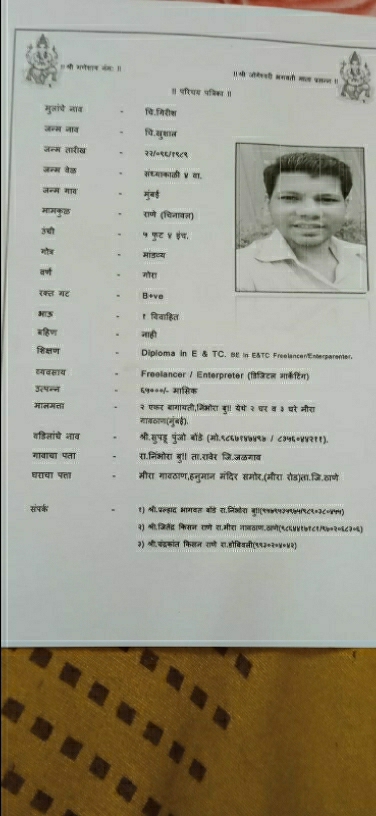 ॥ श्री गणेशाय नमः ॥
॥ श्री जोगेश्वरी भगवती माता प्रसन्न ॥
॥ परिचय पत्रिका ॥
मुलांचे नाव - चि.गिरीष
जन्म नाव - चि.खुशाल
जन्म तारीख - २२/०९६/१९८९
जन्म वेळ - संध्याकाळी ४ वा.
जन्म गाव - मुंबई
मामकुळ - राणे (चिनावल)
उंची - ५ फुट ४ इंच.
गोत्र - माडव्य
वर्ण - गोरा
रक्त गट - B+ve
भाऊ - १ विवाहित
बहिण - नाही
शिक्षण - Diploma in E & TC. BE in E&TC Freelancer/Enterparenter.
व्यवसाय - Freelancer / Enterpreter (डिजिटल मार्केटिंग)
उत्पन्न - ६५०००/- मासिक
मालमत्ता - २ एकर बागायती,निंभोरा बु!! येथे २ घर व ३ घरे मीरा
गावठाण(मुंबई).
वडिलांचे नाव - श्री.सुपडू पुंजो बोंडे
गावाचा पत्ता - रा.निंभोरा बु!! ता.रावेर जि.जळगाव
घराचा पत्ता - मीरा गावठाण,हनुमान मंदिर समोर,(मीरा रोड)ता.जि.ठाणे
संपर्क - १) श्री.प्रल्हाद भागवत बोंडे रा.निंभोरा बु!!
२) श्री.जितेंद्र किसन राणे रा.मीरा गावठाण.ठाणे
३) श्री.चंद्रकांत किसन राणे रा.डोंबिवली